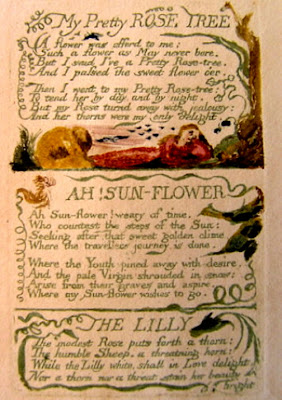 My Pretty ROSE TREE
A flower was offerd to me:
Such a flower as May never bore.
But I said I've a Pretty Rose-tree.
And I passed the sweet flower o'er.
Then I went to my Pretty Rose-tree:
To tend her by day and by night.
But my Rose turnd away with jealousy:
And her thorns were my only delight.
AH! SUN-FLOWER
Ah Sun-flower! weary of time.
Who countest the steps of the Sun:
Seeking after that sweet golden clime
Where the travellers journey is done.
Where the Youth pined away with desire,
And the pale Virgin shrouded in snow:
Arise from their graves and aspire,
Where my Sun-flower wishes to go.
THE LILLY
The modest Rose puts forth a thorn:
The humble Sheep, a threatning horn:
While the Lilly white, shall in Love delight,
Nor a thorn nor a threat stain her beauty bright